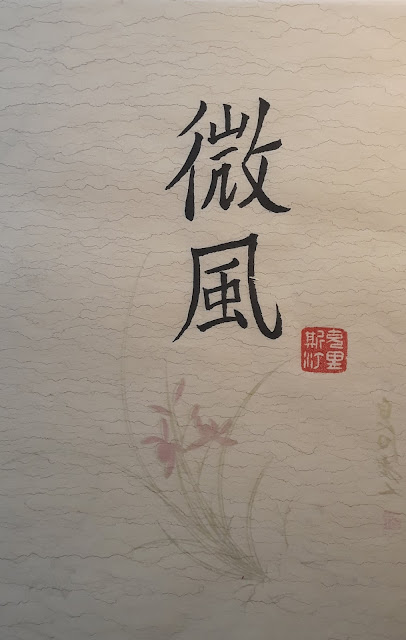 微風
克里斯汀